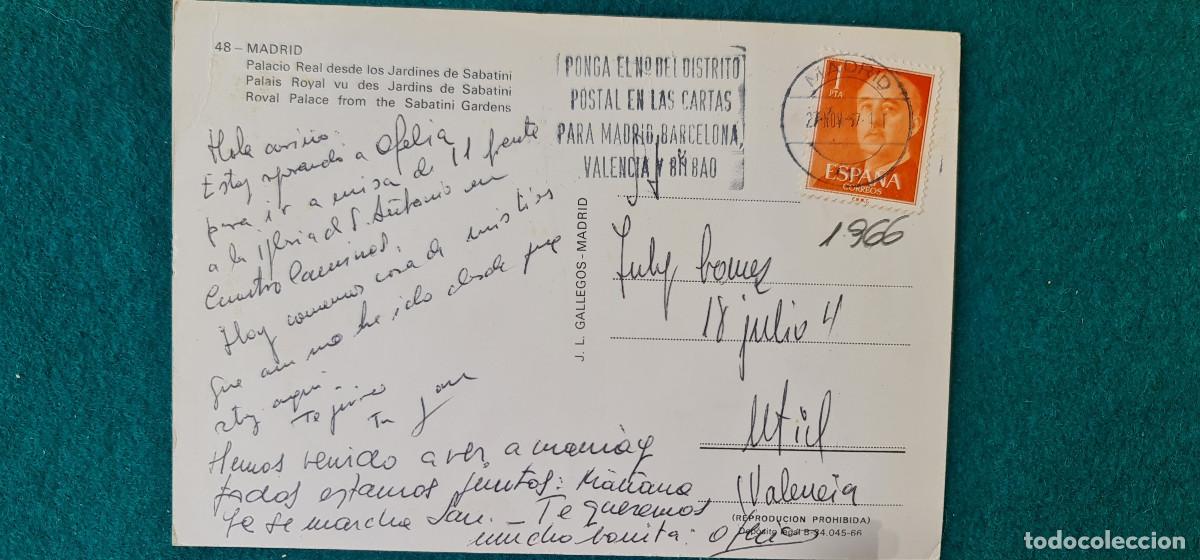 48 – MADRID
Palacio Real desde los Jardines de Sabatini
Palais Royal vu des Jardins de Sabatini
Royal Palace from the Sabatini Gardens
Hola cariño:
Estoy esperando a Ofelia
para ir a misa de 11 frente
a la Iglesia de S. Antonio en
Cuatro Caminos.
Hoy comemos casa de mis tios
que aun no he ido desde que
estoy aqui.
Te quiero
Tu
Hemos venido a ver a mamá y
todos estamos juntos: Mañana
ya se marcha San. – Te queremos
mucho bonita: Ofelia
PONGA EL Nº DEL DISTRITO
POSTAL EN LAS CARTAS
PARA MADRID, BARCELONA,
VALENCIA Y BILBAO
MADRID
1
PTA
ESPAÑA
CORREOS
1966
J. L. GALLEGOS-MADRID
July Gomez
18 julio 4
Utiel
Valencia
(REPRODUCCION PROHIBIDA)
Depósito legal B 34.045-66
todocoleccion